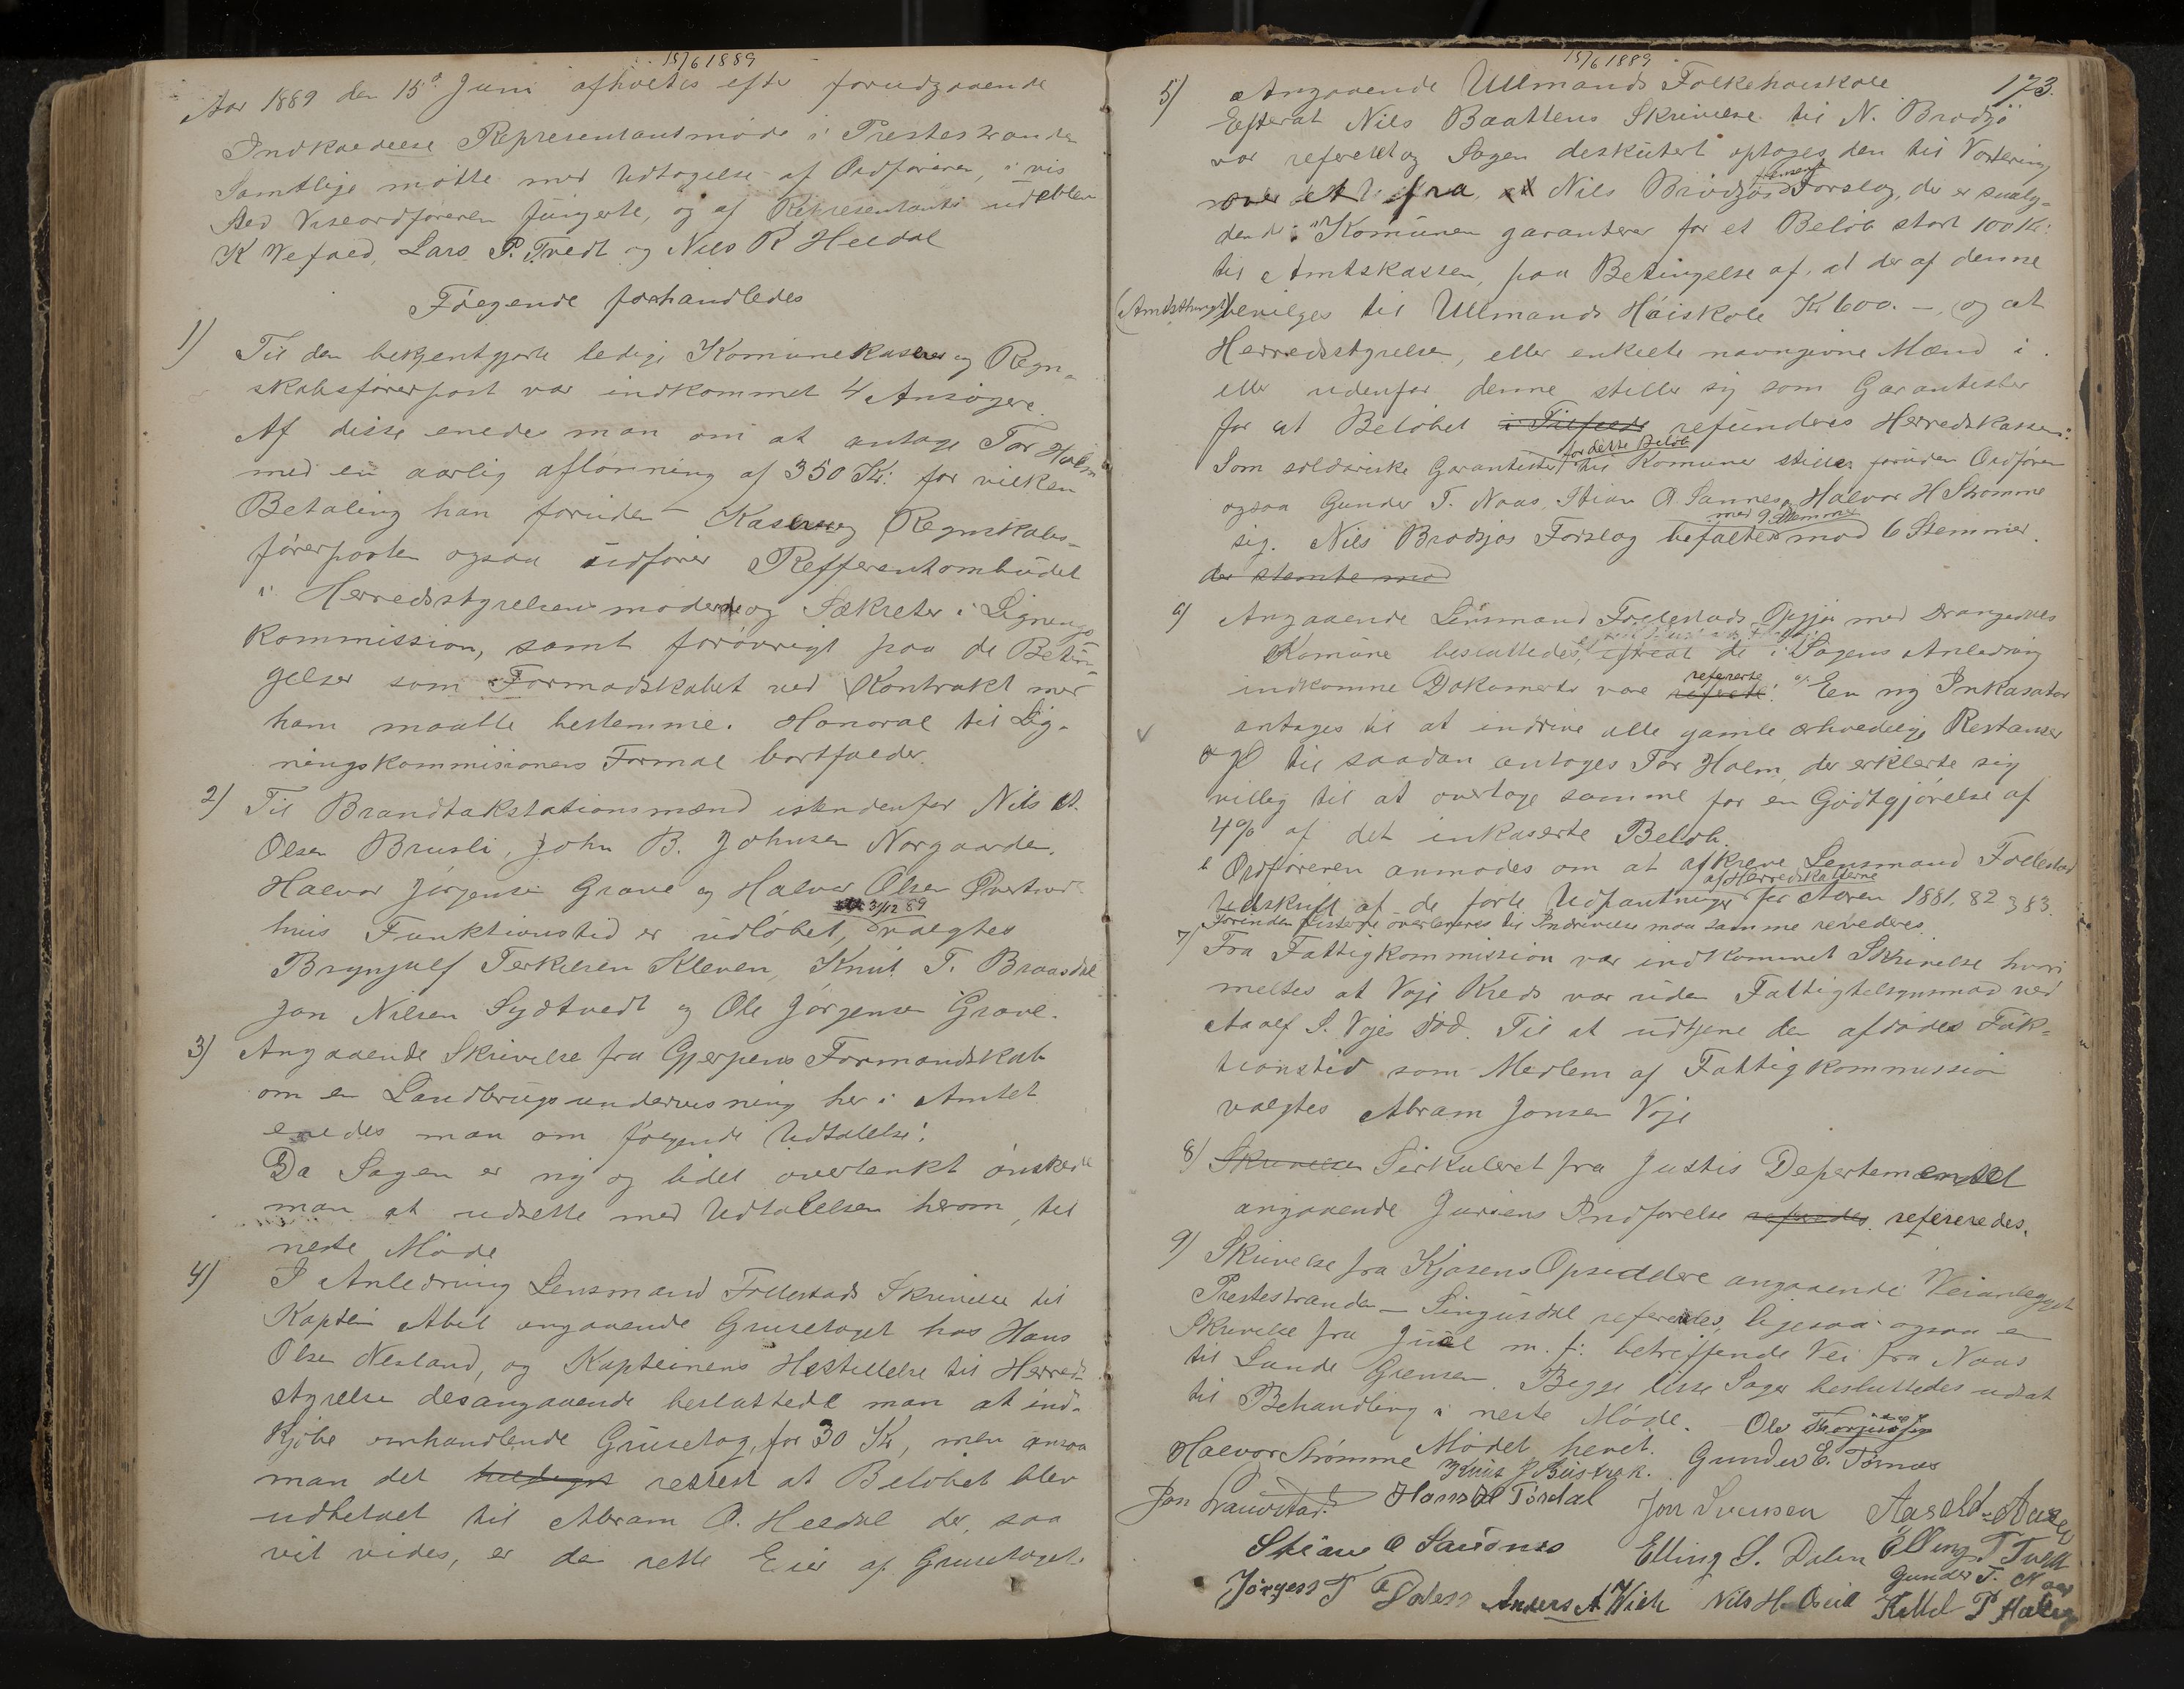 15/6 1889
Aar 1889 den 15d Juni afholtes efter forudgaaende
Indkaldelse Representantmøde i Prestestranden
Samtlige møtte med Udtagelse af Ordføreren, i vis
Sted Viseordføreren fungerte, og af Representanter udeblev
K Vefald, Lars P. Tvedt og Nils R Heldal
Følgende forhandledes
1) Til den bekjentgjorte ledige Komunekaserer og Regn-
skabsførerpost var indkommet 4 Ansøgere.
Af disse enedes man om at antage Tor Holm
med en aarlig aflønning af 350 Kr: for vilken
Betaling han foruden Kaserer og Regnskabs-
førerposten ogsaa udfører Refferentombudet
i Herredsstyrelsens møder og Sekreter i Lignings
kommission, samt forøvrigt paa de Betin-
gelser som Formadskabet ved Kontrakt med
ham maatte bestemme. Honoral til Lig-
ningskommisionens Formal bortfalder.
2) Til Brandtakstationsmænd istendenfor Nils A.
Olsen Brusli, John B. Johnsen Norgaarden,
Halvor Jørgensen Grave og Halvor Olsen Øvertved
31/12 89
huis Funktionstid er udløbet, valgtes
Brynjulf Terkelsen Kleven, Knut T. Braadal
Jon Nilsen Sydtvedt og Ole Jørgensen Grave.
3) Angaaende Skrivelse fra Gjerpens Formandskab
om en Landbrugsundervisning her i Amtet
enedes man om følgende Udtalelse:
Da Sagen er ny og lidet overtenkt ønskede
man at udsette med Udtalelsen herom, til
neste Møde
4) I Anledning Lensmand Follestads Skrivelse til
Kaptein Abel angaaende Grusetaget hos Hans
Olsen Nesland, og Kapteinens Hestillelse til Herred-
styrelse desangaaende besluttede man at ind-
kjøbe omhandlende Grusetag, for 30 Kr, men ansaa
man det rettest at Beløbet blev
udbetalt til Abram O. Heldal der, saa
vit vides, er den rette Eier af Grusetaget.
15/6 1889
173.
5) Angaaende Ullmands Folkehøiskole
Efterat Nils Baattens Skrivelse til N. Brødsjø
var referert og Sagen deskutert optoges den til Votering
over et fra Nils Brødsjø fremsat Forslag, der er saaly-
dende: "Komunen garanterer for et Beløb stort 100 Kr:
til Amtskassen, paa Betingelse af, at der af denne
(Amtsthinget) bevilges til Ullmands Høiskole Kr 600. –, og at
Herredsstyrelsen, eller enkelte navngivne Mænd i
eller udenfor denne stiller sig som Garantister
for at Beløbet i Tilfelde refunderes Herredskassen:
for dette Beløb
Som solidariske Garantister til Komunen stiller foruden Ordføren
ogsaa Gunder T. Naas, Stian O. Sannes og Halvor H Strømme
med 9 Stemmer
sig. Nils Brødsjøs Forslag befaltes mod 6 Stemmer.
der stemte mod
6) Angaaende Lensmand Follestads Opgjør med Drangedals
Komune besluttedes, efterat de i Sagens Anledning
refererte
indkomne Dokumenter vare referert: a, En ny Inkasator
antages til at inddrive alle gamle erholdelige Restanser
og til saadan antages Tor Holm, der erklerte sig
villig til at overtage samme for en Godtgjørelse af
4% af det inkaserte Beløb.
b Ordføreren anmodes om at afkreve Lensmand Follestad
af Herredskatterne
Udskrift af de førte Udpantninger for Aaren 1881, 82 & 83.
Førinden Listerne overleveres til Indrivelse maa samme revederes.
7) Fra Fattigkommission var indkommet Skrivelse hvori
meltes at Voje Kreds var uden Fattigtilsynsmand ved
Aaolf S. Vojes Død. Til at udtjene den afdødes Fuk-
tionstid som Medlem af Fattigkommission
valgtes Abram Jonsen Voje
8) Skrivelse Sirkuleret fra Justis Departementet
angaaende Juriens Indførelse refereredes.
9) Skrivelse fra Kjøsens Opsiddere angaaende Veianlegget
Prestestranden – Singusdal refereredes, ligesaa ogsaa en
Skrivelse fra Juel m. fl: betreffende Vei fra Naas
til Lunde Grensen. Begge disse Sager besluttedes udsat
til Behandling i neste Møde.
Mødet hevet.
Halvor Strømme Gunder E. Tornes
Hans Tørdal Jon Svensen
Stian O Sannes Elling S. Dalen Elling T Tvedt
Gunder T. Naas
Jørgen T Anders A. Wiek Nils H. Kittel P